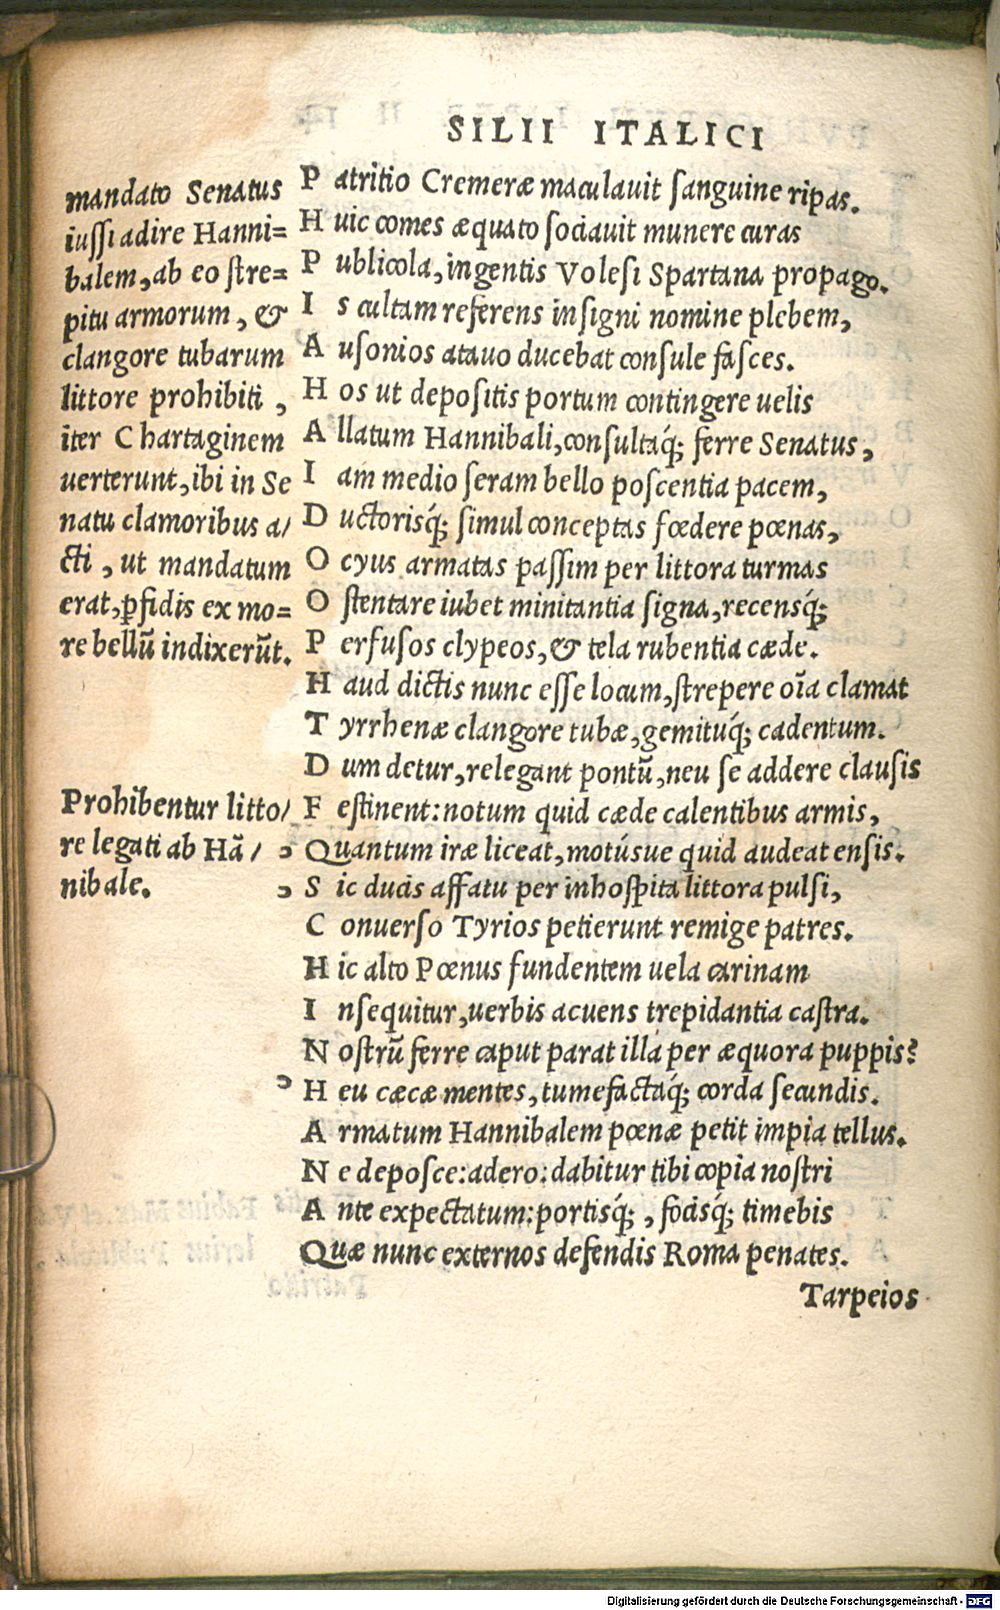 SILII ITALICI
mandato Senatus
iussi adire Hanni=
balem, ab eo stre=
pitu armorum, &
clangore tubarum
littore prohibiti,
iter Chartaginem
uerterunt, ibi in Se
natu clamoribus a/
cti, ut mandatum
erat, ꝑfidis ex mo=
re bellũ indixerũt.
Prohibentur litto/
re legati ab Hã/
nibale.
Patritio Cremeræ maculauit sanguine ripas.
Huic comes æquato sociauit munere curas
Publicola, ingentis Volesi Spartana propago.
Is cultam referens insigni nomine plebem,
Ausonios atauo ducebat consule fasces.
Hos ut depositis portum contingere uelis
Allatum Hannibali, consultaq́; ferre Senatus,
Iam medio seram bello poscentia pacem,
Ductorisq́; simul conceptas fœdere pœnas,
Ocyus armatas passim per littora turmas
Ostentare iubet minitantia signa, recensq́;
Perfusos clypeos, & tela rubentia cæde.
Haud dictis nunc esse locum, strepere oĩa clamat
Tyrrhenæ clangore tubæ, gemituq́; cadentum.
Dum detur, relegant pontũ, neu se addere clausis
Festinent: notum quid cæde calentibus armis,
Quantum iræ liceat, motúsue quid audeat ensis.
Sic ducis affatu per inhospita littora pulsi,
Conuerso Tyrios petierunt remige patres.
Hic alto Pœnus fundentem uela carinam
Insequitur, uerbis acuens trepidantia castra.
Nostrũ ferre caput parat illa per æquora puppis?
Heu cæcæ mentes, tumefactaq́; corda secundis.
Armatum Hannibalem pœnæ petit impia tellus.
Ne deposce: adero: dabitur tibi copia nostri
Ante expectatum: portisq́;, focisq́; timebis
Quæ nunc externos defendis Roma penates.
Tarpeios
Digitalisierung gefördert durch die Deutsche Forschungsgemeinschaft - DFG